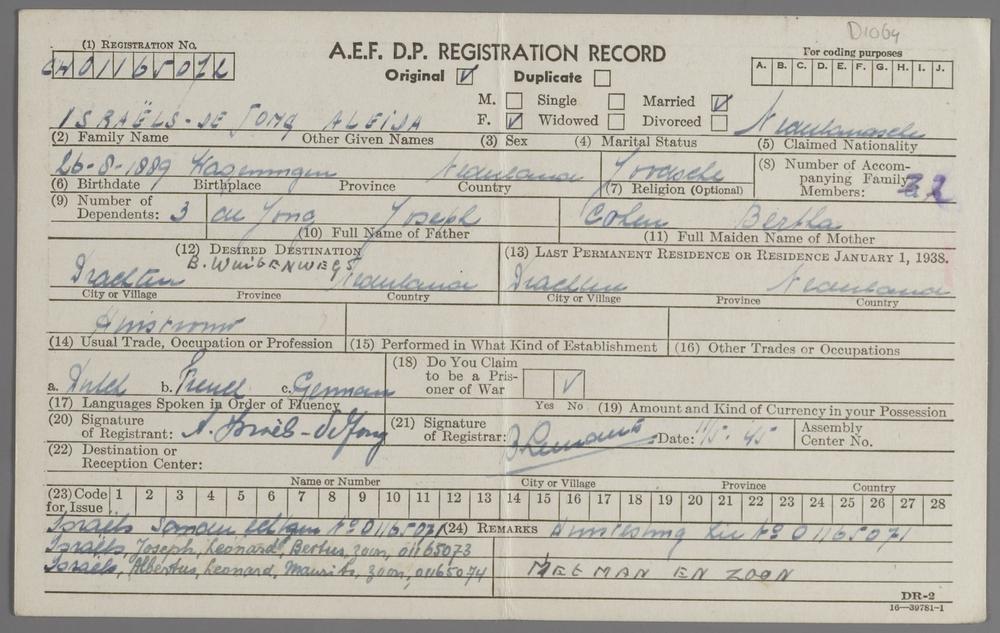 D1064
(1) REGISTRATION NO.
01165072
A.E.F. D.P. REGISTRATION RECORD
Original ☑ Duplicate ☐
For coding purposes
A. B. C. D. E. F. G. H. I. J.
M. ☐ Single ☐ Married ☑
F. ☑ Widowed ☐ Divorced ☐
ISRAËLS - DE JONG ALEIDA
(2) Family Name Other Given Names (3) Sex (4) Marital Status (5) Claimed Nationality
26-8-1889 Nederland Joodsche
(6) Birthdate Birthplace Province Country (7) Religion (Optional)
(8) Number of Accompanying Family Members: 2
(9) Number of Dependents: 3
de Jong Joseph
(10) Full Name of Father
Cohen Bertha
(11) Full Maiden Name of Mother
(12) DESIRED DESTINATION
Drachten Nederland
City or Village Province Country
(13) LAST PERMANENT RESIDENCE OR RESIDENCE JANUARY 1, 1938.
Drachten Nederland
City or Village Province Country
Huisvrouw
(14) Usual Trade, Occupation or Profession (15) Performed in What Kind of Establishment (16) Other Trades or Occupations
a. Dutch b. French c. German
(17) Languages Spoken in Order of Fluency
(18) Do You Claim to be a Prisoner of War
Yes No ☑
(19) Amount and Kind of Currency in your Possession
(20) Signature of Registrant: A. Israëls - de Jong
(21) Signature of Registrar:
Date: 11/5-45
Assembly Center No.
(22) Destination or Reception Center:
Name or Number City or Village Province Country
(23) Code for Issue 1 2 3 4 5 6 7 8 9 10 11 12 13 14 15 16 17 18 19 20 21 22 23 24 25 26 27 28
Israëls No 01165071
(24) REMARKS No 01165071
Israëls, Joseph, Leonard, Bertus, zoon, 01165073
Israëls, Albertus, Leonard, Maurits, zoon, 01165074
MET MAN EN ZOON
DR-2
16—39781-1